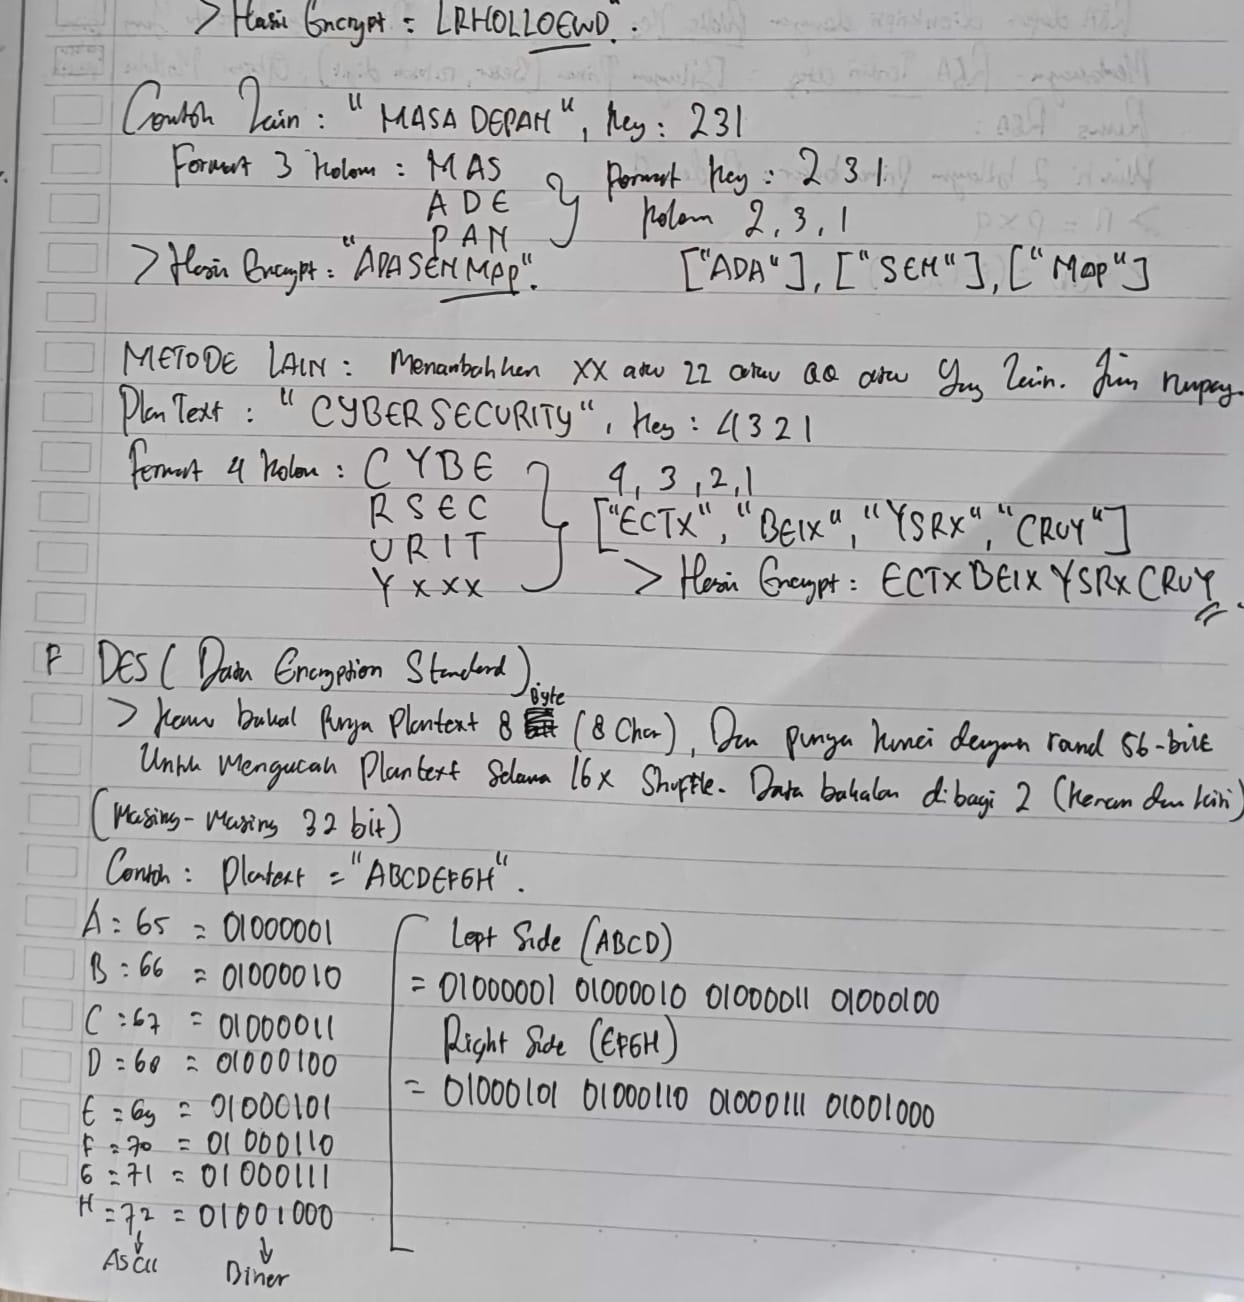 > Hasil Encrypt = LRHOLLOEWD.
Contoh Lain : "MASA DEPAN", Key : 231
Format 3 Kolom : MAS
ADE
PAN
Format Key : 2 3 1.
Kolom 2, 3, 1
["ADA"], ["SEN"], ["MAP"]
> Hasil Encrypt = "ADASENMAP".
METODE LAIN : Menambahkan XX atau ZZ atau QQ atau Yng Lain.
Plan Text : "CYBERSECURITY", Key : 4321
Format 4 Kolom : C Y B E
R S E C
U R I T
Y X X X
4, 3, 2, 1
["ECTX", "BEIX", "YSRX", "CRUY"]
> Hasil Encrypt : ECTX BEIX YSRX CRUY.
F DES ( Data Encryption Standard )
> Kamu bakal Punya Plantext 8 Byte (8 Char), Dan punya kunci dengan rand 56-bit
Untuk Mengucah Plantext Selama 16x Shuffle. Data bakalan dibagi 2 (Kanan dan Kiri)
(Masing-Masing 32 bit)
Contoh : Plantext = "ABCDEFGH".
A = 65 = 01000001
B = 66 = 01000010
C = 67 = 01000011
D = 68 = 01000100
E = 69 = 01000101
F = 70 = 01000110
G = 71 = 01000111
H = 72 = 01001000
ASCII
Biner
Left Side (ABCD)
= 01000001 01000010 01000011 01000100
Right Side (EFGH)
= 01000101 01000110 01000111 01001000